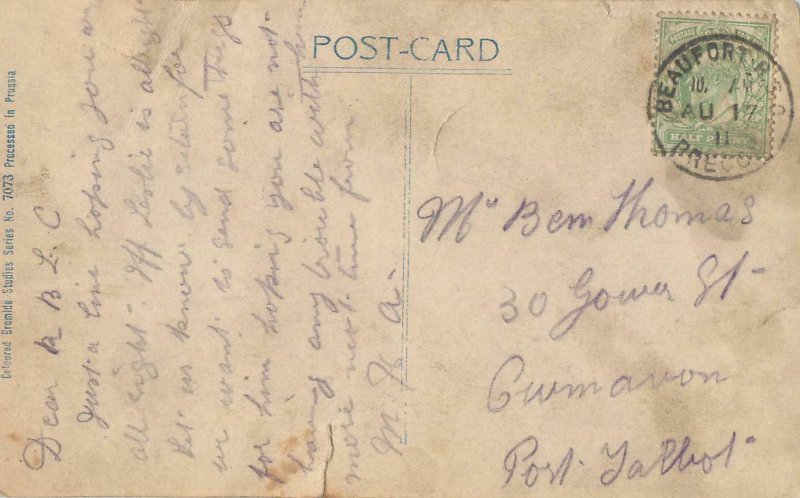 POST-CARD
Coloured Bromide Studies Series No. 7073 Processed in Prussia
HALF PENNY
BEAUFORT R.S.O
10. A
AU 17
11
BRECON
Dear K B L C
Just a line hoping you are
all right. If Leslie is allright
let us know by return for
we want to send some things
for him hoping you are not
having any trouble with him
more next time from
M. H. a.
Mr Bem Thomas
30 Gower St
Cwmavon
Port Talbot